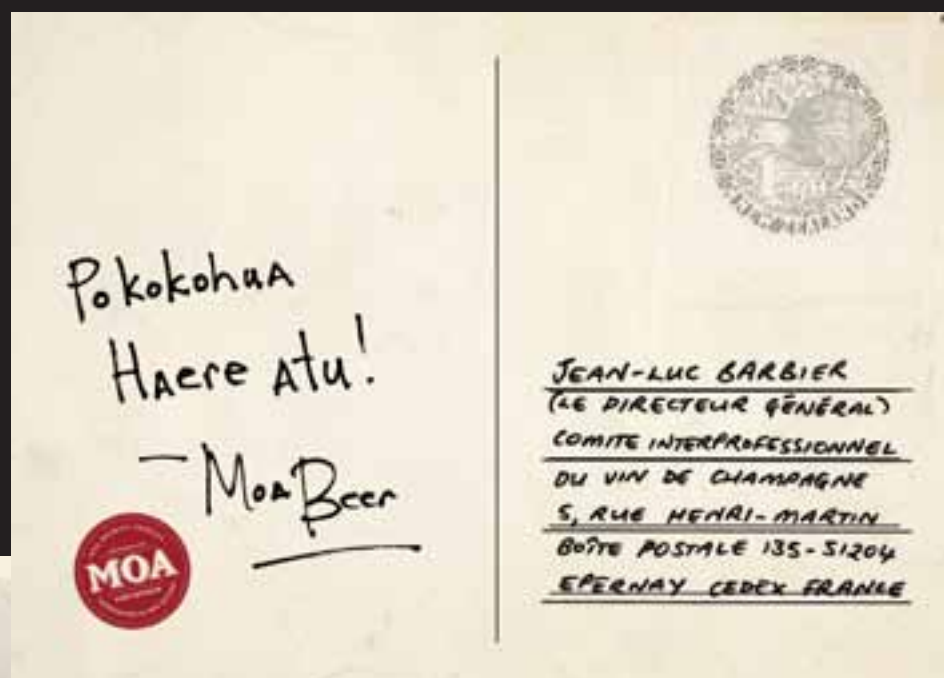 Pokokohua
Haere Atu!
— Moa Beer
MOA
JEAN-LUC BARBIER
(LE DIRECTEUR GÉNÉRAL)
COMITE INTERPROFESSIONNEL
DU VIN DE CHAMPAGNE
5, RUE HENRI-MARTIN
BOÎTE POSTALE 135-51204
EPERNAY CEDEX FRANCE